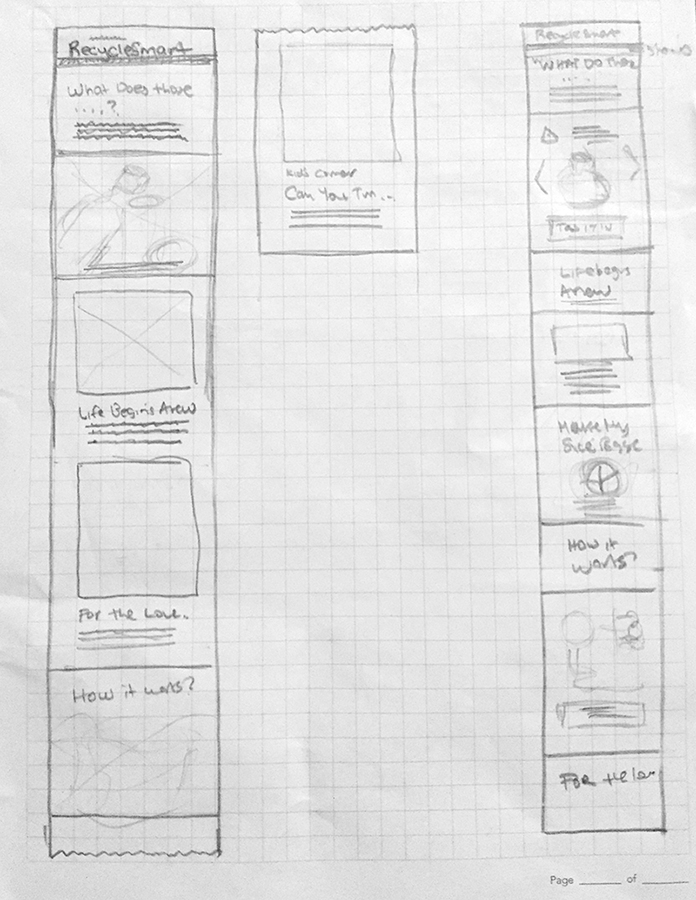 RecycleSmart
What Does those
....?
Life Begins Anew
For the Love.
How it works?
Kid's Corner
Can You Turn...
RecycleSmart
"WHAT DO Those
....
Life begins
Anew
How it
works?
For the lov
Page ______ of ______